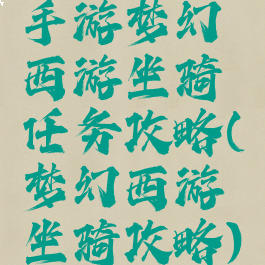 手游梦幻
西游坐骑
任务攻略(
梦幻西游
坐骑攻略)